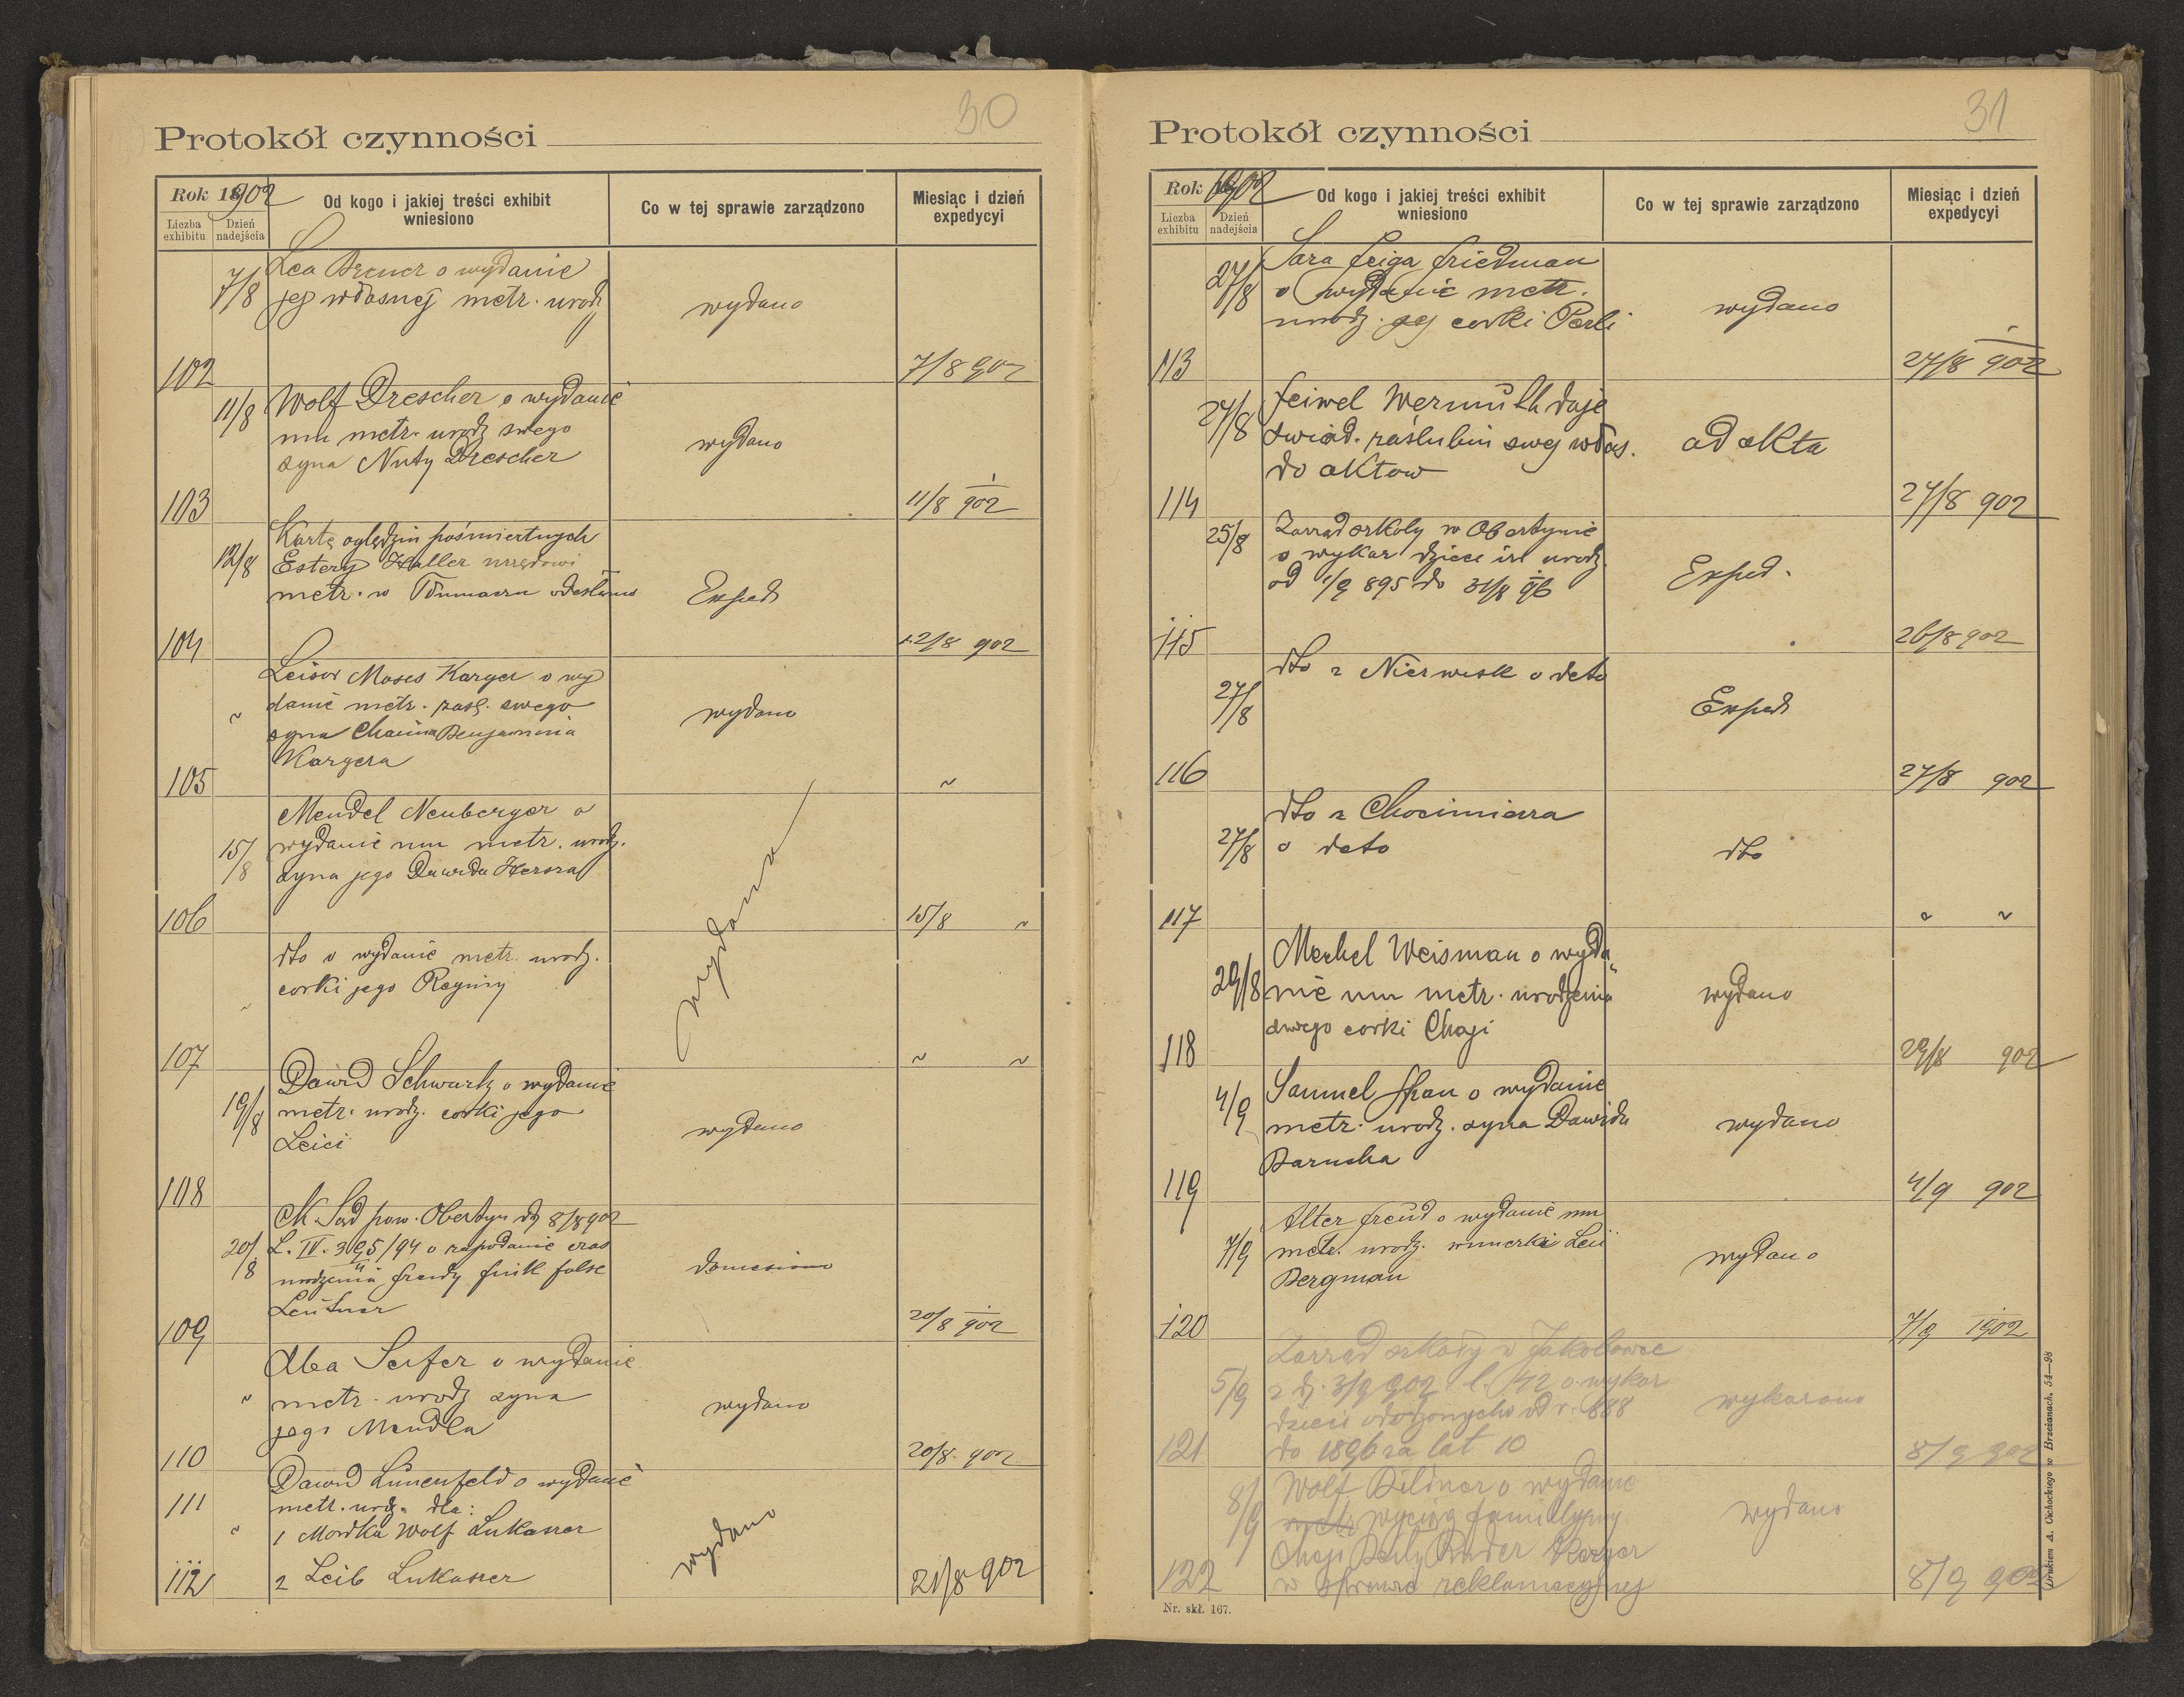 30
Protokół czynności
Rok 1902
Liczba exhibitu
Dzień nadejścia
Od kogo i jakiej treści exhibit wniesiono
Co w tej sprawie zarządzono
Miesiąc i dzień expedycyi
7/8
Lea Brener o wydanie
jej własnej metr. urodz
wydano
102
7/8 902
11/8
Wolf Drescher o wydanie
mu metr. urodz swego
syna Nuty Drescher
wydano
103
11/8 902
12/8
Kartę oględzin pośmiertnych
Estery Haller urzędowi
metr. w Tłumaczu odesłano
Exped
104
12/8 902
"
Leisor Moses Karger o wy
danie metr. zaśl. swego
syna Chaima Benjamina
Kargera
wydano
105
"
15/8
Mendel Neuberger o
wydanie mu metr. urodz.
syna jego Dawida Hersza
wydano
106
15/8 "
"
dto o wydanie metr. urodz.
corki jego Reginy
107
" "
19/8
Dawid Schwartz o wydanie
metr. urodz. corki jego
Leici
wydano
108
20/8
CK Sąd pow. Obertyn dz 8/8 902
L. IV. 395/94 o zapodanie czas
urodzenia Freudy Finik false
Leutner
doniesiono
109
20/8 902
"
Aba Seifer o wydanie
metr. urodz syna
jego Mendla
wydano
110
20/8 902
111
"
Dawid Linnenfeld o wydanie
metr. urdz. dla:
1 Mordka Wolf Lukaszer
112
2 Leib Lukaszer
wydano
21/8 902
31
Protokół czynności
Rok 1902
Liczba exhibitu
Dzień nadejścia
Od kogo i jakiej treści exhibit wniesiono
Co w tej sprawie zarządzono
Miesiąc i dzień expedycyi
27/8
Sara Feiga Friedman
o wydanie metr.
urodz. jej corki Perli
wydano
113
27/8 902
27/8
Feiwel Wermuth daje
świad. zaślubin swej włas.
do aktow
ad akta
114
27/8 902
25/8
Zarząd szkoły w Obertynie
o wykaz dzieci izl urodz.
od 1/9 895 do 31/8 96
Exped.
115
26/8 902
27/8
dto z Niezwisk o deto
Exped
116
27/8 902
27/8
dto z Chocimierza
o deto
dto
117
" "
29/8
Mechel Weisman o wyda
nie mu metr. urodzenia
swego corki Chaji
wydano
118
29/8 902
4/9
Samuel Span o wydanie
metr. urodz. syna Dawida
Barucha
wydano
119
4/9 902
7/9
Alter Freud o wydanie mu
metr. urodz. wnuczki Leii
Bergman
wydano
120
7/9 1902
5/9
Zarząd szkoły w Jakobowce
z dz. 3/9 902 l. 42 o wykaz
dzieci urodzonych od r. 888
do 1896 za lat 10
wykazano
121
8/9 902
8/9
Wolf Bildner o wydanie
metr wyciąg familijny
Chaji Perly Karger
w sprawie reklamacyjnej
wydano
122
8/9 902
Nr. skł. 167.
Drukiem A. Cichockiego w Brzeżanach. 54—98